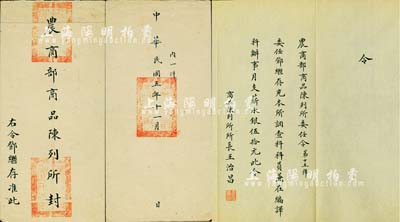 令
農商部商品陳列所委任令第三號
委任鄧繼存充本所調查科科員兼在編譯
科辦事月支薪水銀伍拾元此令
商品陳列所所長王治昌
內一件
中華民國五年十一月
日
農商部商品陳列所封
右令鄧繼存准此
上海陽明拍賣
Shanghai auction